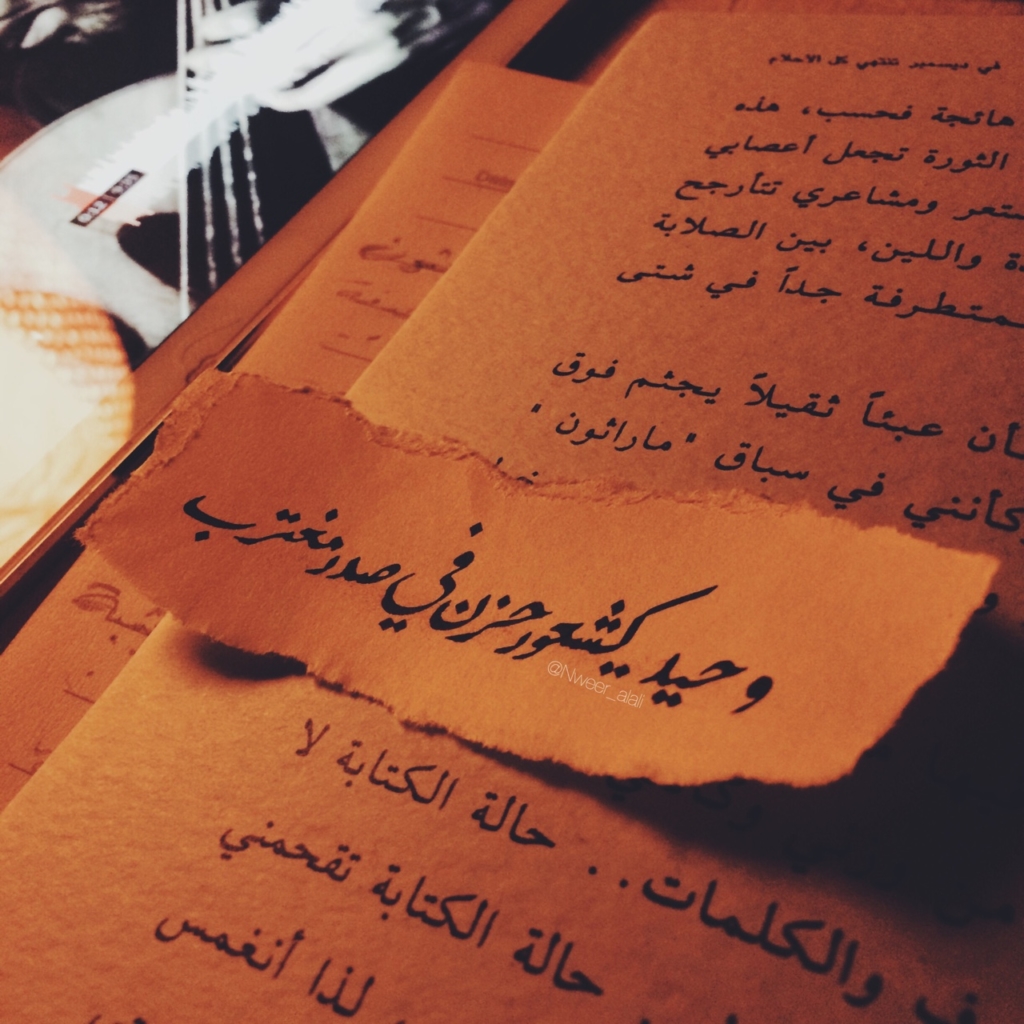 في ديسمبر تنتهي كل الأحلام
هائجة فحسب، هذه
الثورة تجعل أعصابي
ومشاعري تتأرجح
واللين، بين الصلابة
جداً في شتى
عبئاً ثقيلاً يجثم فوق
كأنني في سباق "ماراثون"
وحيد كشعور حزن في صدر مغترب
@Nweer_alali
والكلمات.. حالة الكتابة لا
حالة الكتابة تقحمني
لذا أنغمس